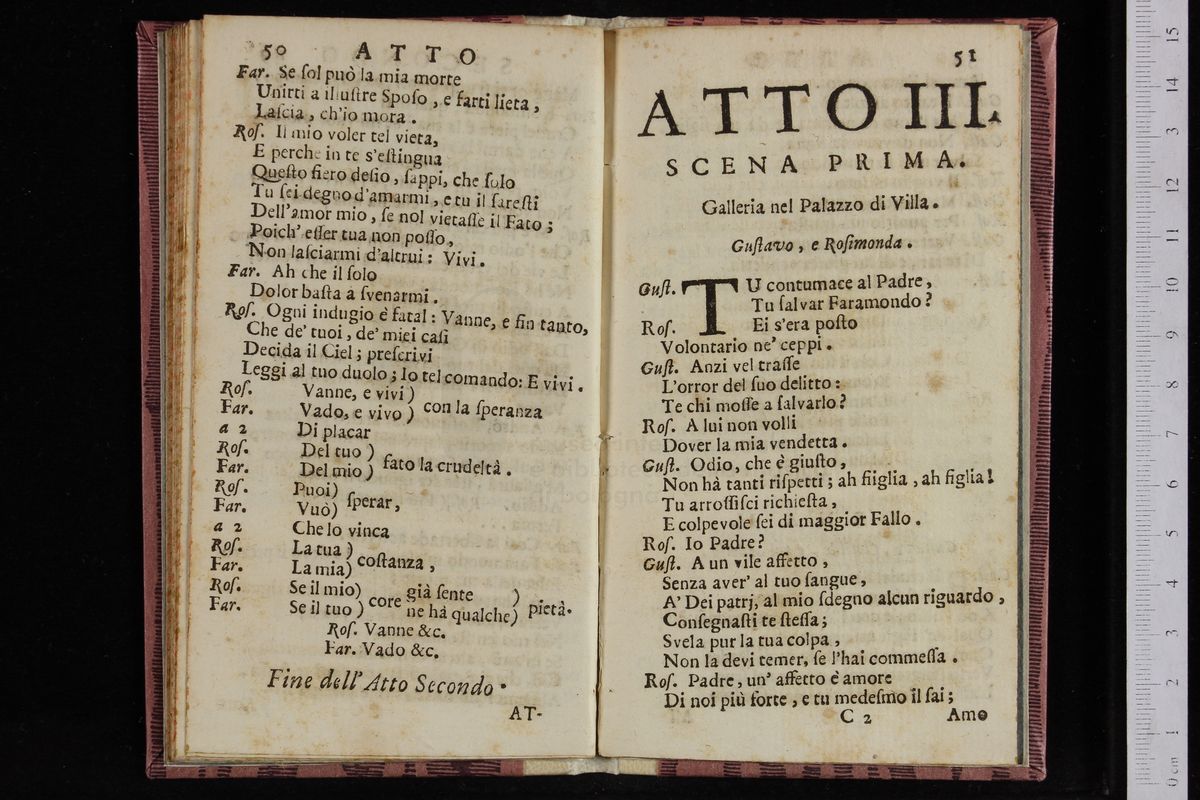 50 ATTO
Far. Se ſol può la mia morte
Unirti a illuſtre Spoſo , e farti lieta ,
Laſcia , ch'io mora .
Roſ. Il mio voler tel vieta,
E perche in te s'eſtingua
Queſto fiero deſio , ſappi, che ſolo
Tu ſei degno d'amarmi , e tu il fareſti
Dell'amor mio , ſe nol vietaſſe il Fato ;
Poich' eſſer tua non poſſo ,
Non laſciarmi d'altrui : Vivi .
Far. Ah che il ſolo
Dolor baſta a ſvenarmi .
Roſ. Ogni indugio è fatal : Vanne, e fin tanto,
Che de' tuoi , de' miei caſi
Decida il Ciel ; preſcrivi
Leggi al tuo duolo ; Io tel comando: E vivi .
Roſ. Vanne, e vivi )
Far. Vado, e vivo ) con la ſperanza
a 2 Di placar
Roſ. Del tuo )
Far. Del mio ) fato la crudeltà .
Roſ. Puoi)
Far. Vuò) ſperar,
a 2 Che lo vinca
Roſ. La tua )
Far. La mia) coſtanza ,
Roſ. Se il mio) già ſente )
Far. Se il tuo ) core ne hà qualche) pietà.
Roſ. Vanne &c.
Far. Vado &c.
Fine dell'Atto Secondo .
AT-
51
ATTO III.
SCENA PRIMA.
Galleria nel Palazzo di Villa .
Guſtavo , e Roſimonda .
Guſt. TU contumace al Padre ,
Tu ſalvar Faramondo ?
Roſ. Ei s'era poſto
Volontario ne' ceppi .
Guſt. Anzi vel traſſe
L'orror del ſuo delitto :
Te chi moſſe a ſalvarlo ?
Roſ. A lui non volli
Dover la mia vendetta .
Guſt. Odio, che è giuſto ,
Non hà tanti riſpetti ; ah fiiglia , ah figlia !
Tu arroſſiſci richieſta ,
E colpevole ſei di maggior Fallo .
Roſ. Io Padre ?
Guſt. A un vile affetto ,
Senza aver' al tuo ſangue ,
A' Dei patrj, al mio ſdegno alcun riguardo ,
Conſegnaſti te ſteſſa ;
Svela pur la tua colpa ,
Non la devi temer, ſe l'hai commeſſa .
Roſ. Padre , un' affetto è amore
Di noi più forte , e tu medeſmo il ſai ;
C 2 Amo